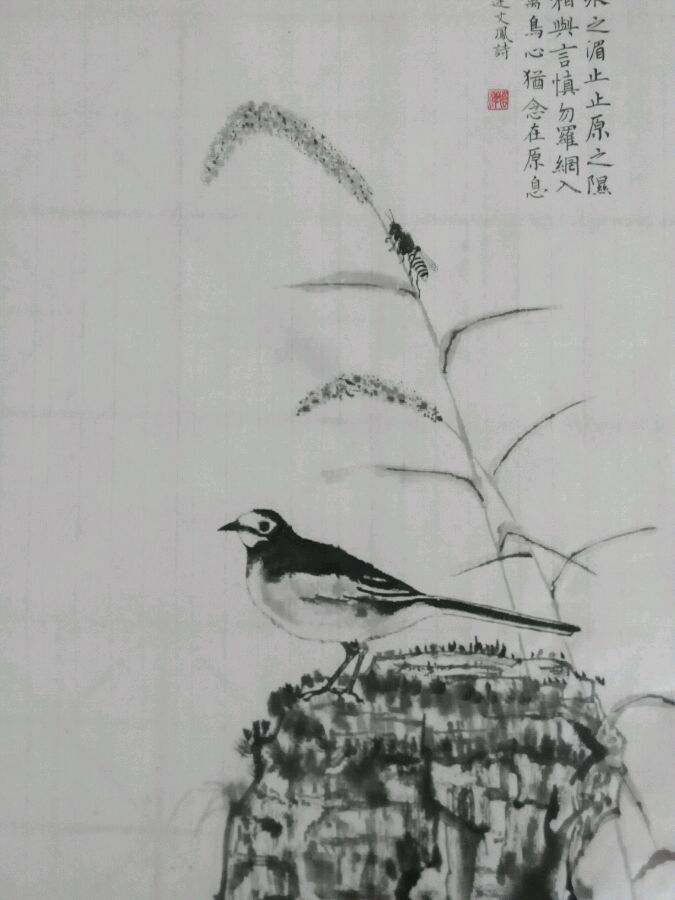 之湄止止原之隰
相與言慎勿羅網入
鳥心猶念在原息
連文鳳詩